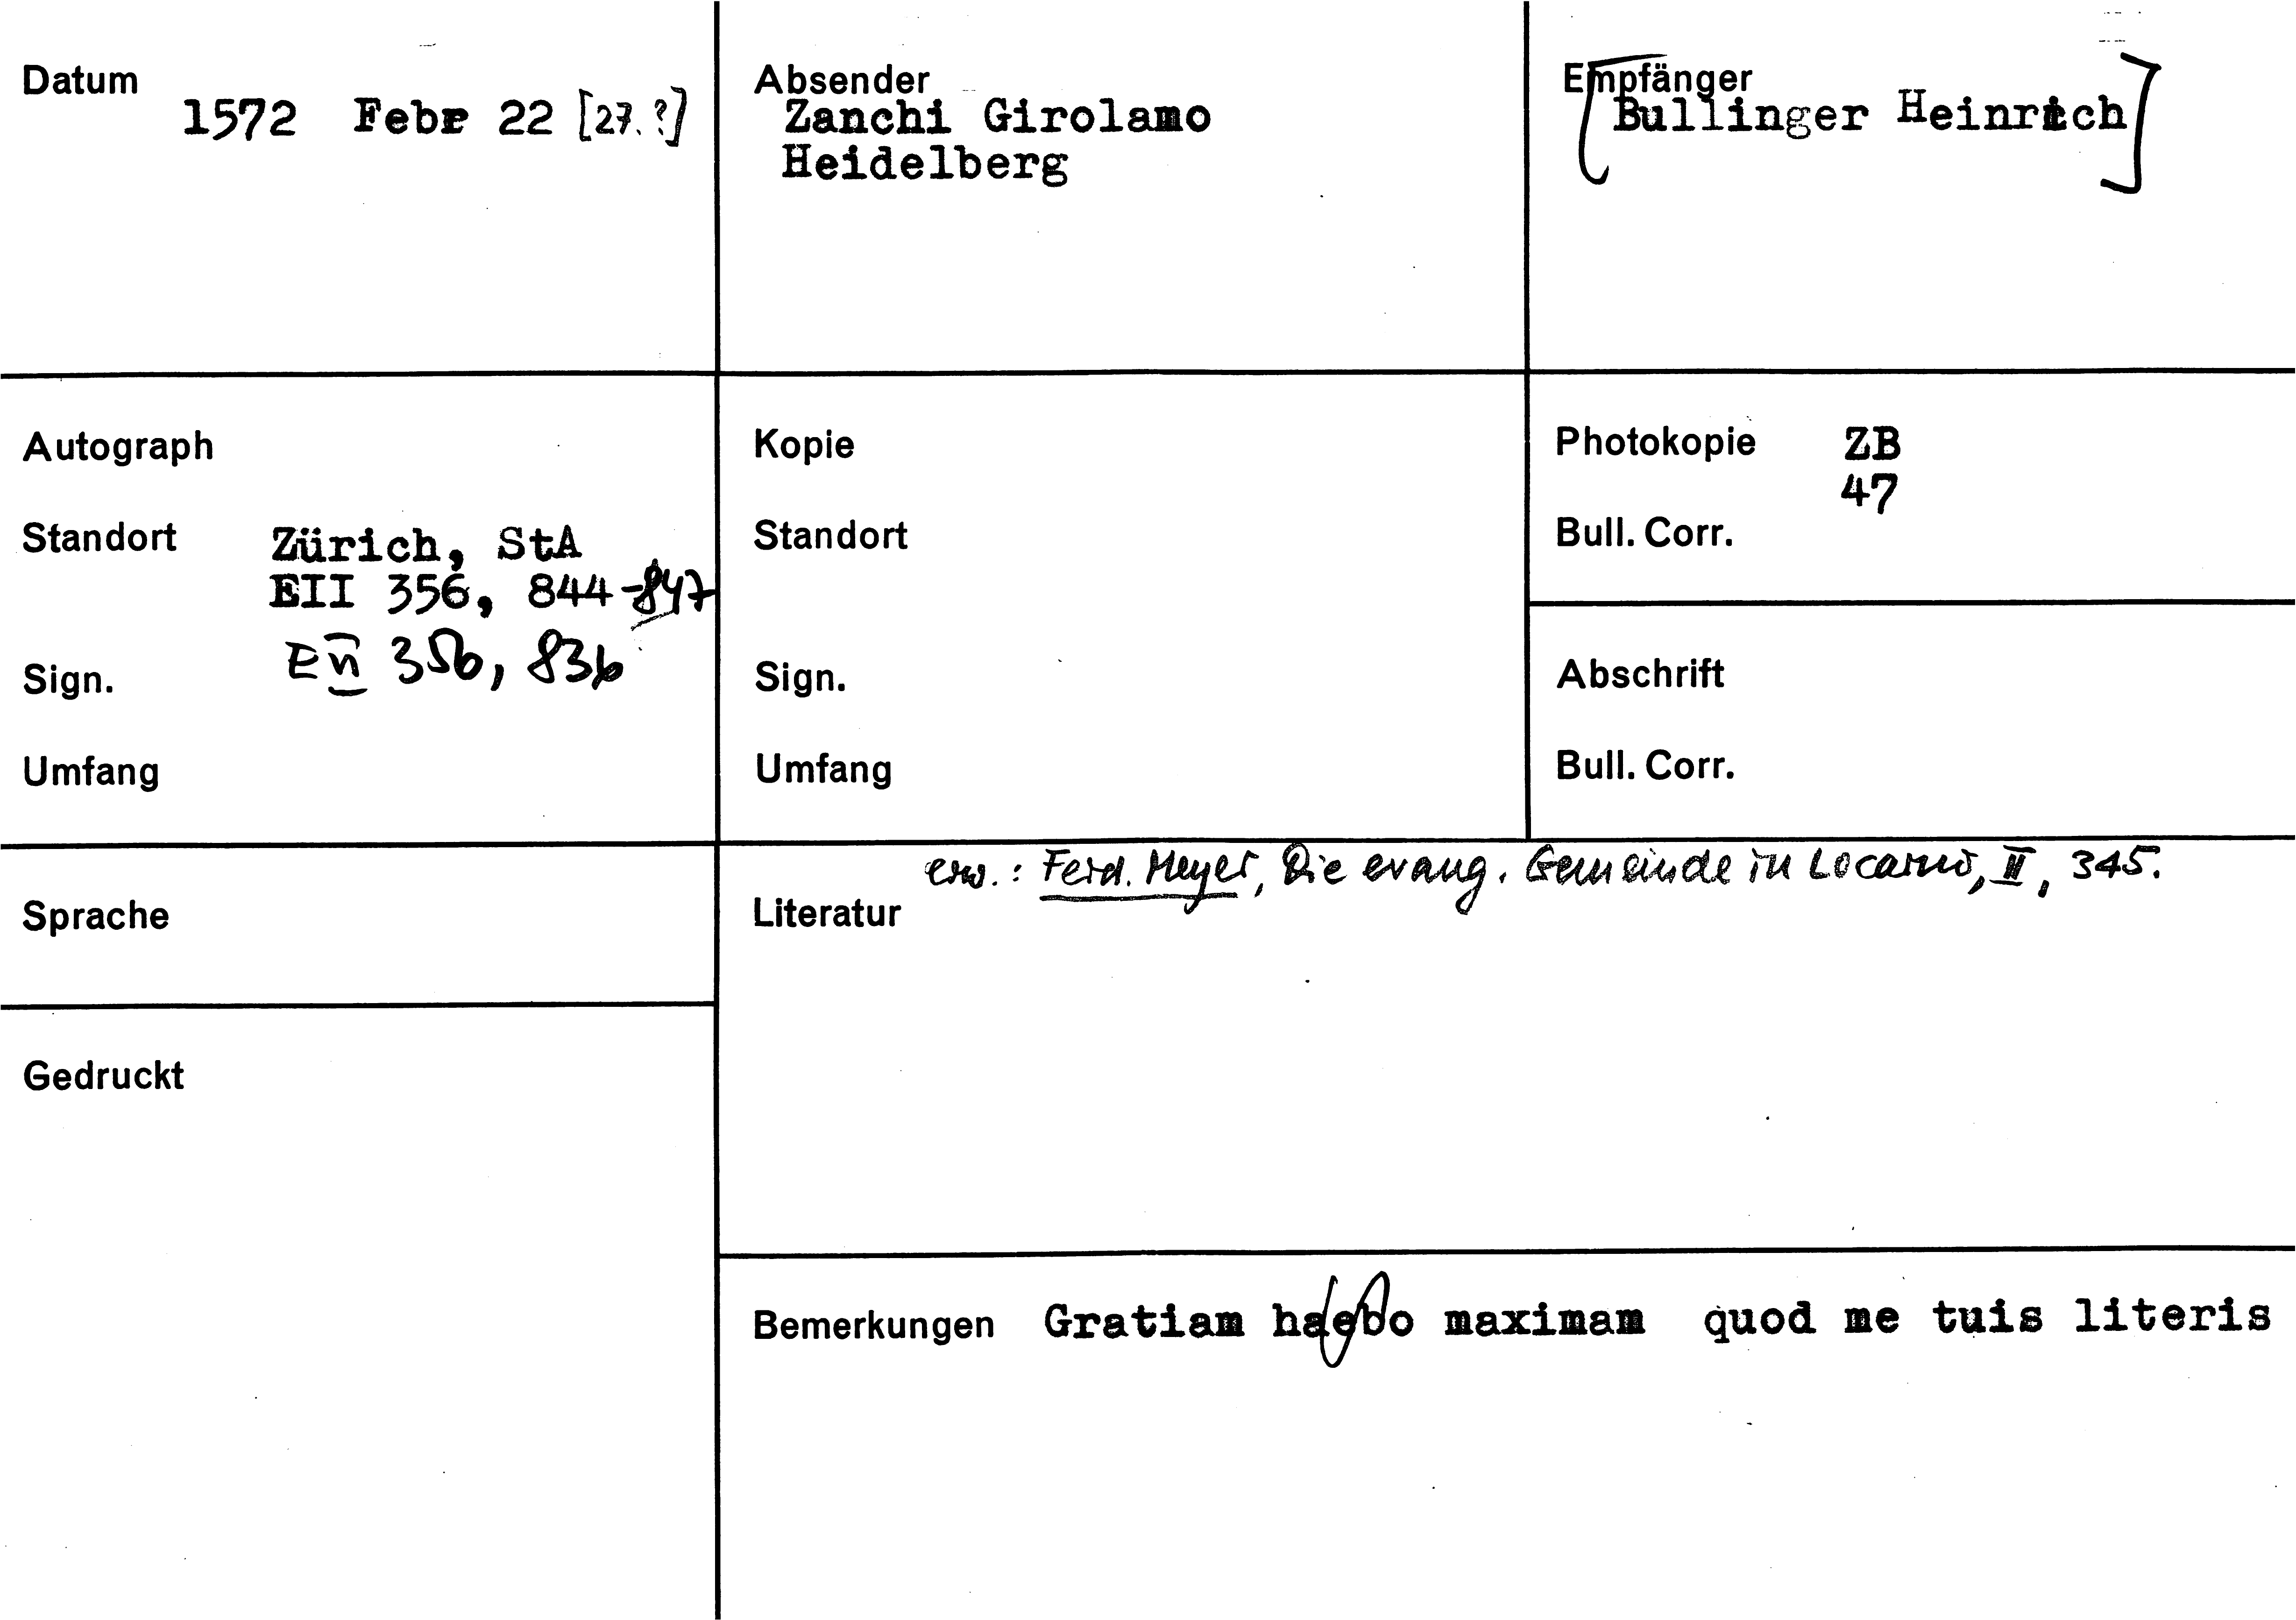 Datum
1572 Febr 22 [27.?]
Absender
Zanchi Girolamo
Heidelberg
Empfänger
[Bullinger Heinrich]
Autograph
Standort Zürich, StA
EII 356, 844-847
Sign. EII 356, 836
Umfang
Kopie
Standort
Sign.
Umfang
Photokopie ZB
47
Bull. Corr.
Abschrift
Bull. Corr.
Sprache
Gedruckt
erw.: Ferd. Meyer, Die evang. Gemeinde in Locarno, II, 345.
Literatur
Bemerkungen Gratiam haebo maximam quod me tuis literis